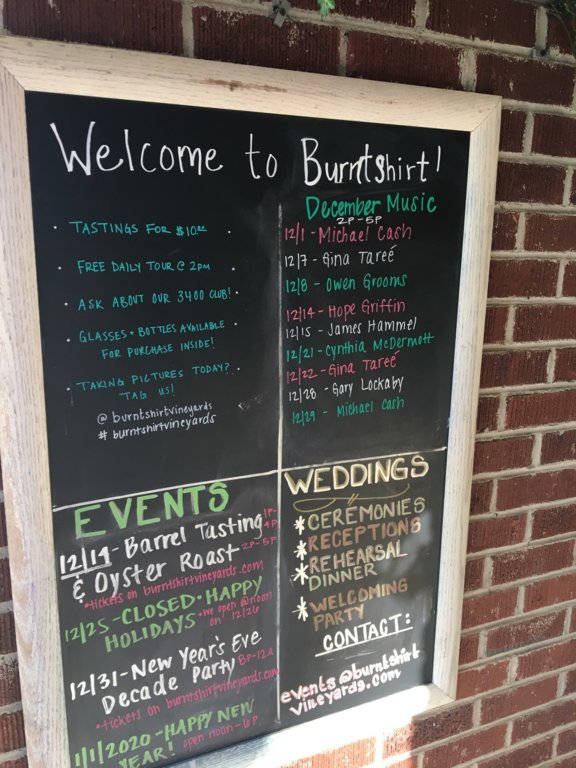 Welcome to Burntshirt!
• TASTINGS FOR $10.00 •
• FREE DAILY TOUR @ 2PM •
• ASK ABOUT OUR 3400 CLUB! •
• GLASSES + BOTTLES AVAILABLE •
FOR PURCHASE INSIDE!
• TAKING PICTURES TODAY? •
TAG US!
@ burntshirtvineyards
# burntshirtvineyards
December Music
2P-5P
12/1 - Michael Cash
12/7 - Gina Tareé
12/8 - Owen Grooms
12/14 - Hope Griffin
12/15 - James Hammel
12/21 - Cynthia McDermott
12/22 - Gina Tareé
12/28 - Gary Lockaby
12/29 - Michael Cash
EVENTS
12/14 - Barrel Tasting 1P-4P
& Oyster Roast 2P-5P
*tickets on burntshirtvineyards.com
12/25 - CLOSED • HAPPY
HOLIDAYS *we open @ noon
on 12/26
12/31 - New Year's Eve
Decade Party 8P-12A
*tickets on burntshirtvineyards.com
1/1/2020 - HAPPY NEW
YEAR! open noon - 6P
WEDDINGS
* CEREMONIES
* RECEPTIONS
* REHEARSAL
DINNER
* WELCOMING
PARTY
CONTACT:
events@burntshirt
vineyards.com